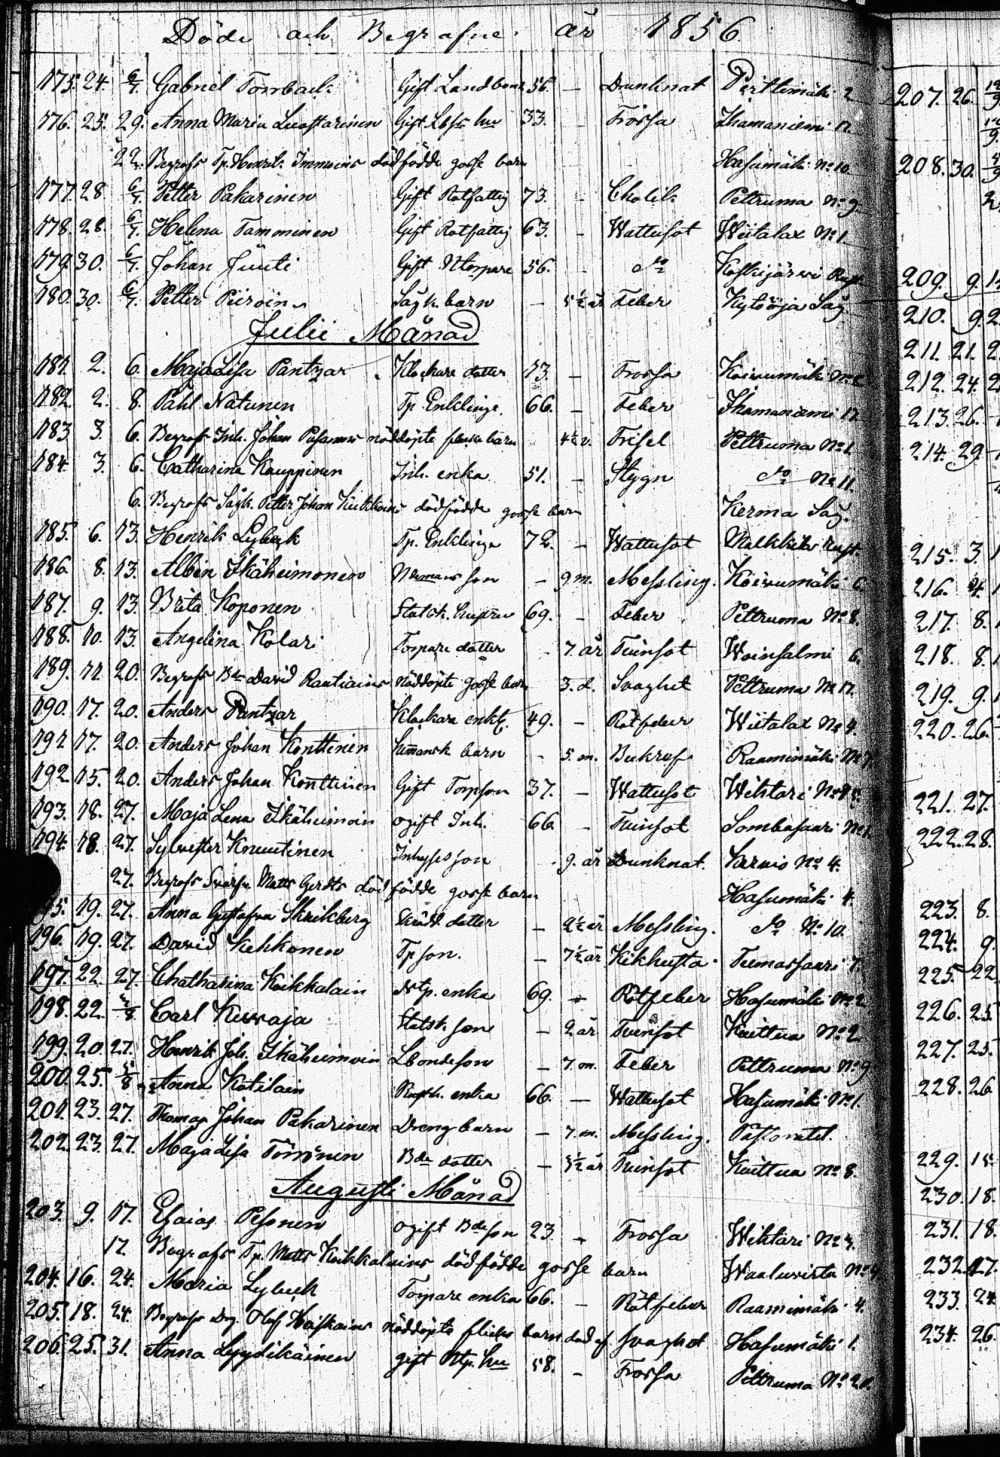 Döde och Begrafne år 1856
175. 24. 6/7. Gabriel Tornback Gift Landbonde 56. - Drunknat Pärttimäki 2
176. 25. 29. Anna Maria Luostarinen Gift 33. - Frossa Ihamaniemi 12.
22. Begrofs Tp. Henrik Immoins dödfödde gosse barn Hasumäki No 10.
177. 28. 6/7. Petter Pakarinen Gift Rotfattig 73. - Cholik Pettruma No 9.
178. 28. 6/7. Helena Tamminen Gift Rotfattig 63. - Wattusot Wiitalax No 1
179. 30. 6/7. Johan Juuti Gift Ntorpare 56. - do Koskijärwi
180. 30. 6/7. Petter Piiroin Sågk. barn - 5½ år Feber Kytöoja Såg
Julii Månad
181. 2. 6. Maja Lisa Pantzar Klockare dotter 13. - Frossa Koivumäki No
182. 2. 8. Påhl Natunen Tp. Enklinge. 66. - Feber Ihamaniemi 12
183. 3. 6. Begrofs Inh. Johan nöddöpte flicka barn 4½ v. Frisel Pettruma No 1.
184. 3. 6. Catharina Kauppinen Inh. enka 51. - Stygn do No 11.
6. Begrofs Sågk. Petter Johan dödfödde gosse barn Kerma Såg.
185. 6. 13. Henrik Lybeck Tp. Enklinge 72. - Wattusot
186. 8. 13. Albin Ikäheimonen son - 9 m. Messling. Koivumäki 6.
187. 9. 13. Brita Koponen Statsk. hustru 69. - Feber Pettruma No 8.
188. 10. 13. Angelina Kolari Torpare dotter - 7. år Tvinsot Woinsalmi 6.
189. 11. 20. Begrofs Bde David Rautiains nöddöpte gosse barn 3. d. Svaghet Pettruma No 12.
190. 17. 20. Anders Pantzar Klockare enkl. 49. - Rötfeber Wiitalax No 4.
191. 17. 20. Anders Johan Konttinen barn - 5. m. Bukref Raaminmäki No 7.
192. 15. 20. Anders Johan Konttinen Gift Torpson 37. - Wattusot Wihtari No
193. 18. 27. Maja Lena Ikäheimoin ogift Inh. 66. - Tvinsot Sombasaari No 1.
194. 18. 27. Sylvester Knuutinen Inhyses son - 9. år Drunknat. Sarwis No 4.
27. Begrofs Matts Gerdts dödfödde gosse barn Hasumäki 4.
195. 19. 27. Anna Gustafva dotter - 2½ år Messling. do No 10.
196. 19. 27. David Kekkonen Tpson. - 7½ år Kikhusta. Tuomassaari 7.
197. 22. 27. Chatharina Koikkalain enka 69. - Rötfeber Hasumäki No 2
198. 22. Carl Kervaja Statsk. son - 2. år Tvinsot Kuittua No 2
199. 20. 27. Henrik Joh. Ikäheimoin Lbondeson - 7. m. Feber Pettruma No 9
200. 25. 3/8. Anna Kotilain enka 66. - Wattusot Hasumäki No 1.
201. 23. 27. Thomas Johan Pakarinen Dreng barn - 7. m. Messling.
202. 23. 27. Maja Lisa Törrönen Bde dotter - 3½ år Tvinsot Kuittua No 8.
Augusti Månad
203. 9. 17. Esaias Pesonen ogift Bde son 23. - Frossa Wihtari No 3.
17. Begrofs Tp. Matts Koikkalains dödfödde gosse barn Waaluvirta No
204. 16. 24. Maria Lybeck Torpare enka 66. - Rötfeber Raaminmäki 4.
205. 18. 24. Begrofs Drg. Olof nöddöpte flicke barn död af svaghet Hasumäki 1.
206. 25. 31. Anna Lyydikäinen gift Ntp. hu 58. - Frossa Pettruma No
207. 26.
208. 30.
209. 9.
210. 9.
211. 21.
212. 24.
213. 26.
214. 29.
215. 3.
216. 4.
217. 8.
218. 8.
219. 9.
220. 26.
221. 27.
222. 28.
223. 8.
224. 9.
225. 22.
226. 25.
227. 25.
228. 26.
229. 15.
230. 18.
231. 18.
232. 17.
233. 24.
234. 26.